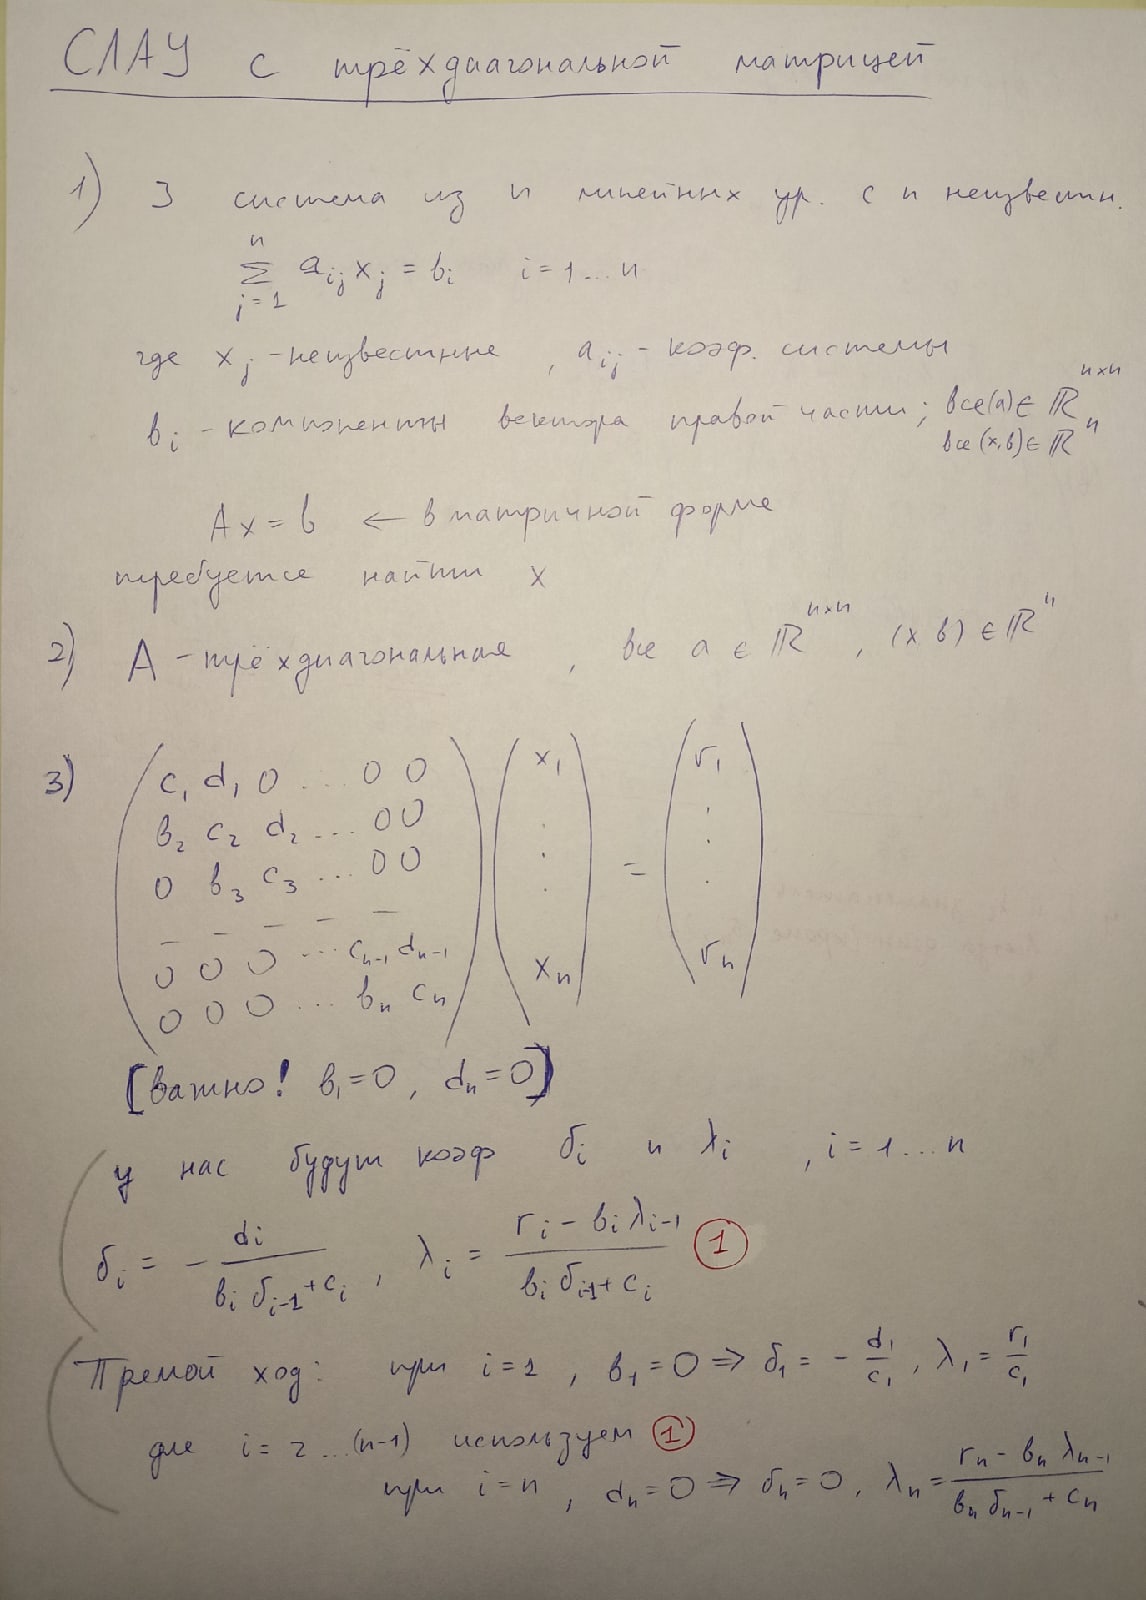 СЛАУ с трёхдиагональной матрицей
1) З система из n линейных ур. с n неизвестн.
n
∑ aᵢⱼ xⱼ = bᵢ i = 1 ... n
j = 1
где xⱼ - неизвестные , aᵢⱼ - коэф. системы
bᵢ - компоненты вектора правой части ; все(a) ∈ ℝⁿˣⁿ
все (x,b) ∈ ℝⁿ
Ax = b ← в матричной форме
требуется найти x
2) A - трёхдиагональная , все a ∈ ℝⁿˣⁿ , (x b) ∈ ℝⁿ
3)
c₁ d₁ 0 ... 0 0 x₁ r₁
b₂ c₂ d₂ ... 0 0 .  .
0 b₃ c₃ ... 0 0 . = .
– – – – – . .
0 0 0 ... cₙ₋₁ dₙ₋₁
0 0 0 ... bₙ cₙ xₙ rₙ
[Важно! b₁=0, dₙ=0]
у нас будут коэф δᵢ и λᵢ , i = 1 ... n
δᵢ = - dᵢ / (bᵢ δᵢ₋₁ + cᵢ) , λᵢ = (rᵢ - bᵢ λᵢ₋₁) / (bᵢ δᵢ₋₁ + cᵢ) ①
Прямой ход: при i = 1 , b₁ = 0 ⇒ δ₁ = - d₁/c₁ , λ₁ = r₁/c₁
для i = 2 ... (n-1) используем ①
при i = n , dₙ = 0 ⇒ δₙ = 0, λₙ = (rₙ - bₙ λₙ₋₁) / (bₙ δₙ₋₁ + cₙ)